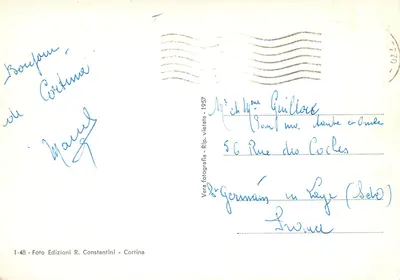 Bonjour
de Cortina
Marcel
Mr et Mme Guillou
56 Rue des Coches
St Germain en Laye (S et O)
France
Vera fotografia - Rip. vietata - 1957
1-48 - Foto Edizioni R. Constantini - Cortina